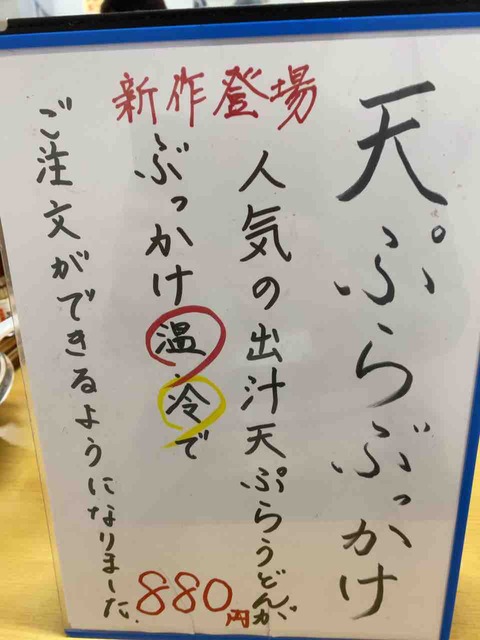 天ぷらぶっかけ
新作登場
人気の出汁天ぷらうどんが
ぶっかけ温冷で
ご注文ができるようになりました.
880円